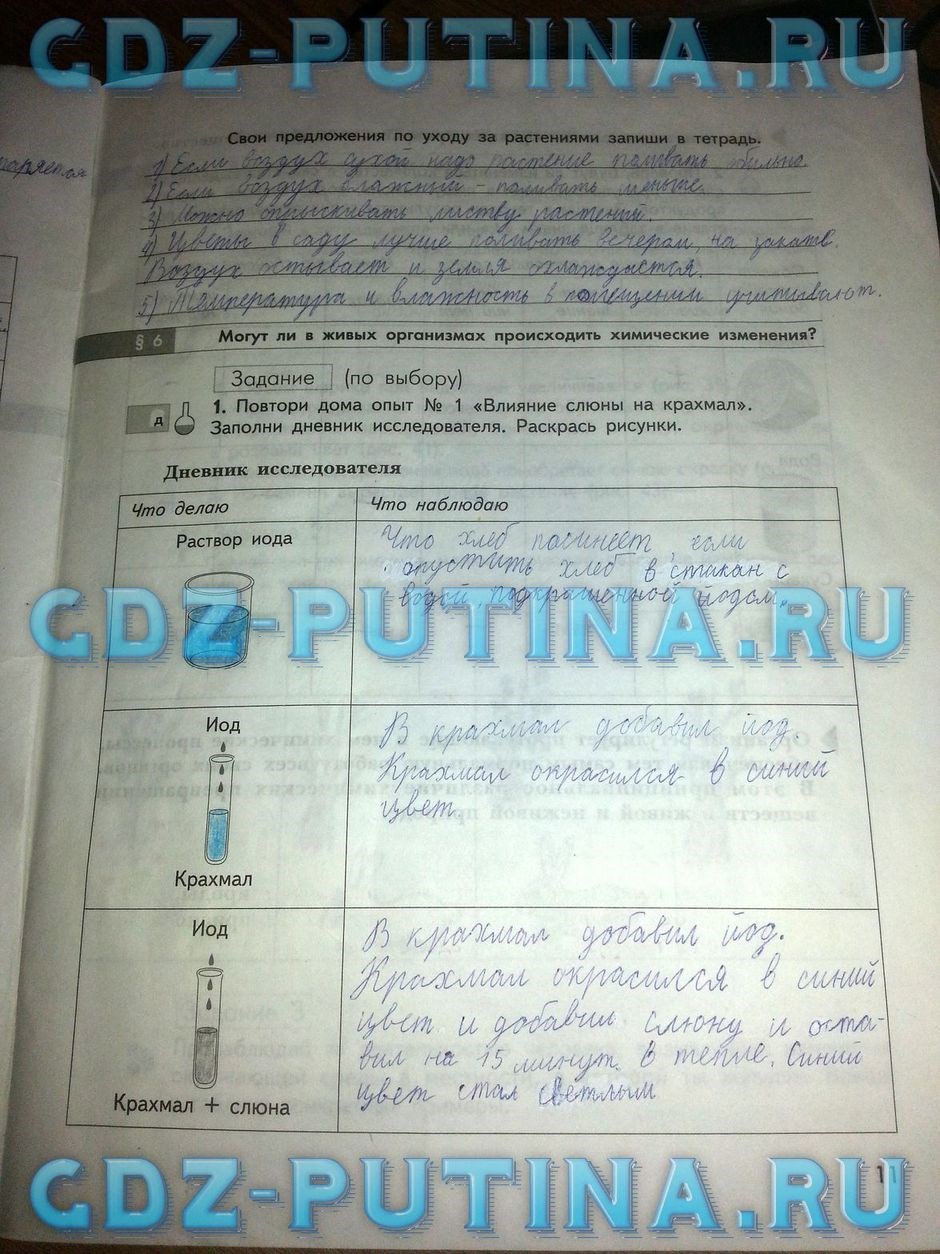 GDZ-PUTINA.RU
Свои предложения по уходу за растениями запиши в тетрадь.
1) Если воздух сухой надо растение поливать обильно.
2) Если воздух влажный - поливать меньше.
3) Можно опрыскивать листву растений.
4) Цветы в саду лучше поливать вечером, на закате.
Воздух остывает и земля охлаждается.
5) Температура и влажность в помещении учитывают.
§ 6 Могут ли в живых организмах происходить химические изменения?
Задание (по выбору)
д 1. Повтори дома опыт № 1 «Влияние слюны на крахмал».
Заполни дневник исследователя. Раскрась рисунки.
Дневник исследователя
Что делаю Что наблюдаю
Раствор иода
Что хлеб посинеет, если
опустить хлеб в стакан с
водой, подкрашенной йодом.
GDZ-PUTINA.RU
Иод
Крахмал
В крахмал добавил йод.
Крахмал окрасился в синий
цвет.
Иод
Крахмал + слюна
В крахмал добавил йод.
Крахмал окрасился в синий
цвет и добавил слюну и оста-
вил на 15 минут в тепле. Синий
цвет стал светлым
11
GDZ-PUTINA.RU